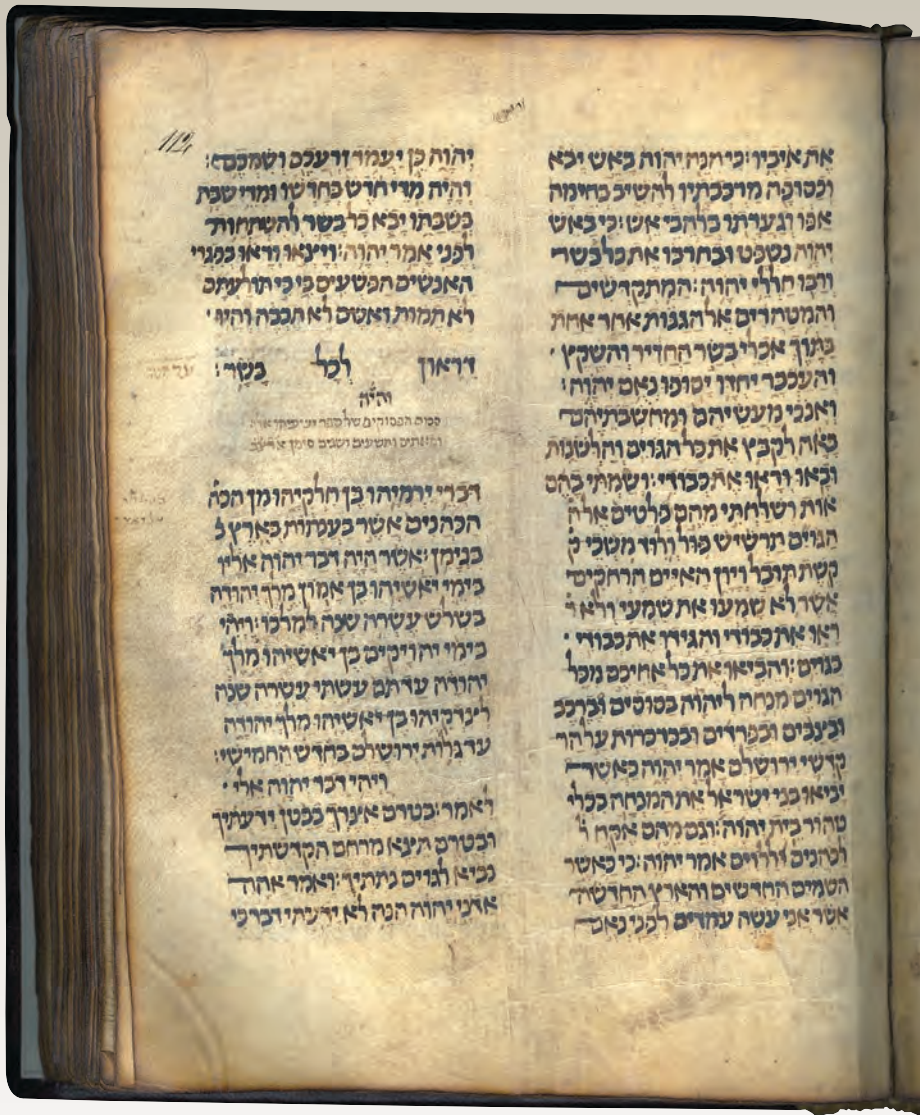 את איביו׃ כי הנה יהוה באש יבא
וכסופה מרכבתיו להשיב בחימה
אפו וגערתו בלהבי אש׃ כי באש
יהוה נשפט ובחרבו את כל בשר
ורבו חללי יהוה׃ המתקדשים
והמטהרים אל הגנות אחר אחת
בתוך אכלי בשר החזיר והשקץ
והעכבר יחדו יסופו נאם יהוה׃
ואנכי מעשיהם ומחשבתיהם
באה לקבץ את כל הגוים והלשנות
ובאו וראו את כבודי׃ ושמתי בהם
אות ושלחתי מהם פלטים אל ה
הגוים תרשיש פול ולוד משכי ק
קשת תובל ויון האיים הרחקים
אשר לא שמעו את שמעי ולא ר
ראו את כבודי והגידו את כבודי
בגוים׃ והביאו את כל אחיכם מכל
הגוים מנחה ליהוה בסוסים וברכב
ובצבים ובפרדים ובכרכרות על הר
קדשי ירושלם אמר יהוה כאשר
יביאו בני ישראל את המנחה בכלי
טהור בית יהוה׃ וגם מהם אקח ל
לכהנים ללוים אמר יהוה׃ כי כאשר
השמים החדשים והארץ החדשה
אשר אני עשה עמדים לפני נאם
112
יהוה כן יעמד זרעכם ושמכם׃
והיה מדי חדש בחדשו ומדי שבת
בשבתו יבא כל בשר להשתחות
לפני אמר יהוה׃ ויצאו וראו בפגרי
האנשים הפשעים בי כי תולעתם
לא תמות ואשם לא תכבה והיו
דראון לכל בשר׃
והיה
סכום הפסוקים של ספר ישעיהו אלף
ומאתים ותשעים ושנים סימן
דברי ירמיהו בן חלקיהו מן הכה
הכהנים אשר בענתות בארץ ב
בנימן׃ אשר היה דבר יהוה אליו
בימי יאשיהו בן אמון מלך יהודה
בשלש עשרה שנה למלכו׃ ויהי
בימי יהויקים בן יאשיהו מלך
יהודה עד תם עשתי עשרה שנה
לצדקיהו בן יאשיהו מלך יהודה
עד גלות ירושלם בחדש החמישי׃
ויהי דבר יהוה אלי
לאמר׃ בטרם אצרך בבטן ידעתיך
ובטרם תצא מרחם הקדשתיך
נביא לגוים נתתיך׃ ואמר אהה
אדני יהוה הנה לא ידעתי דבר כי